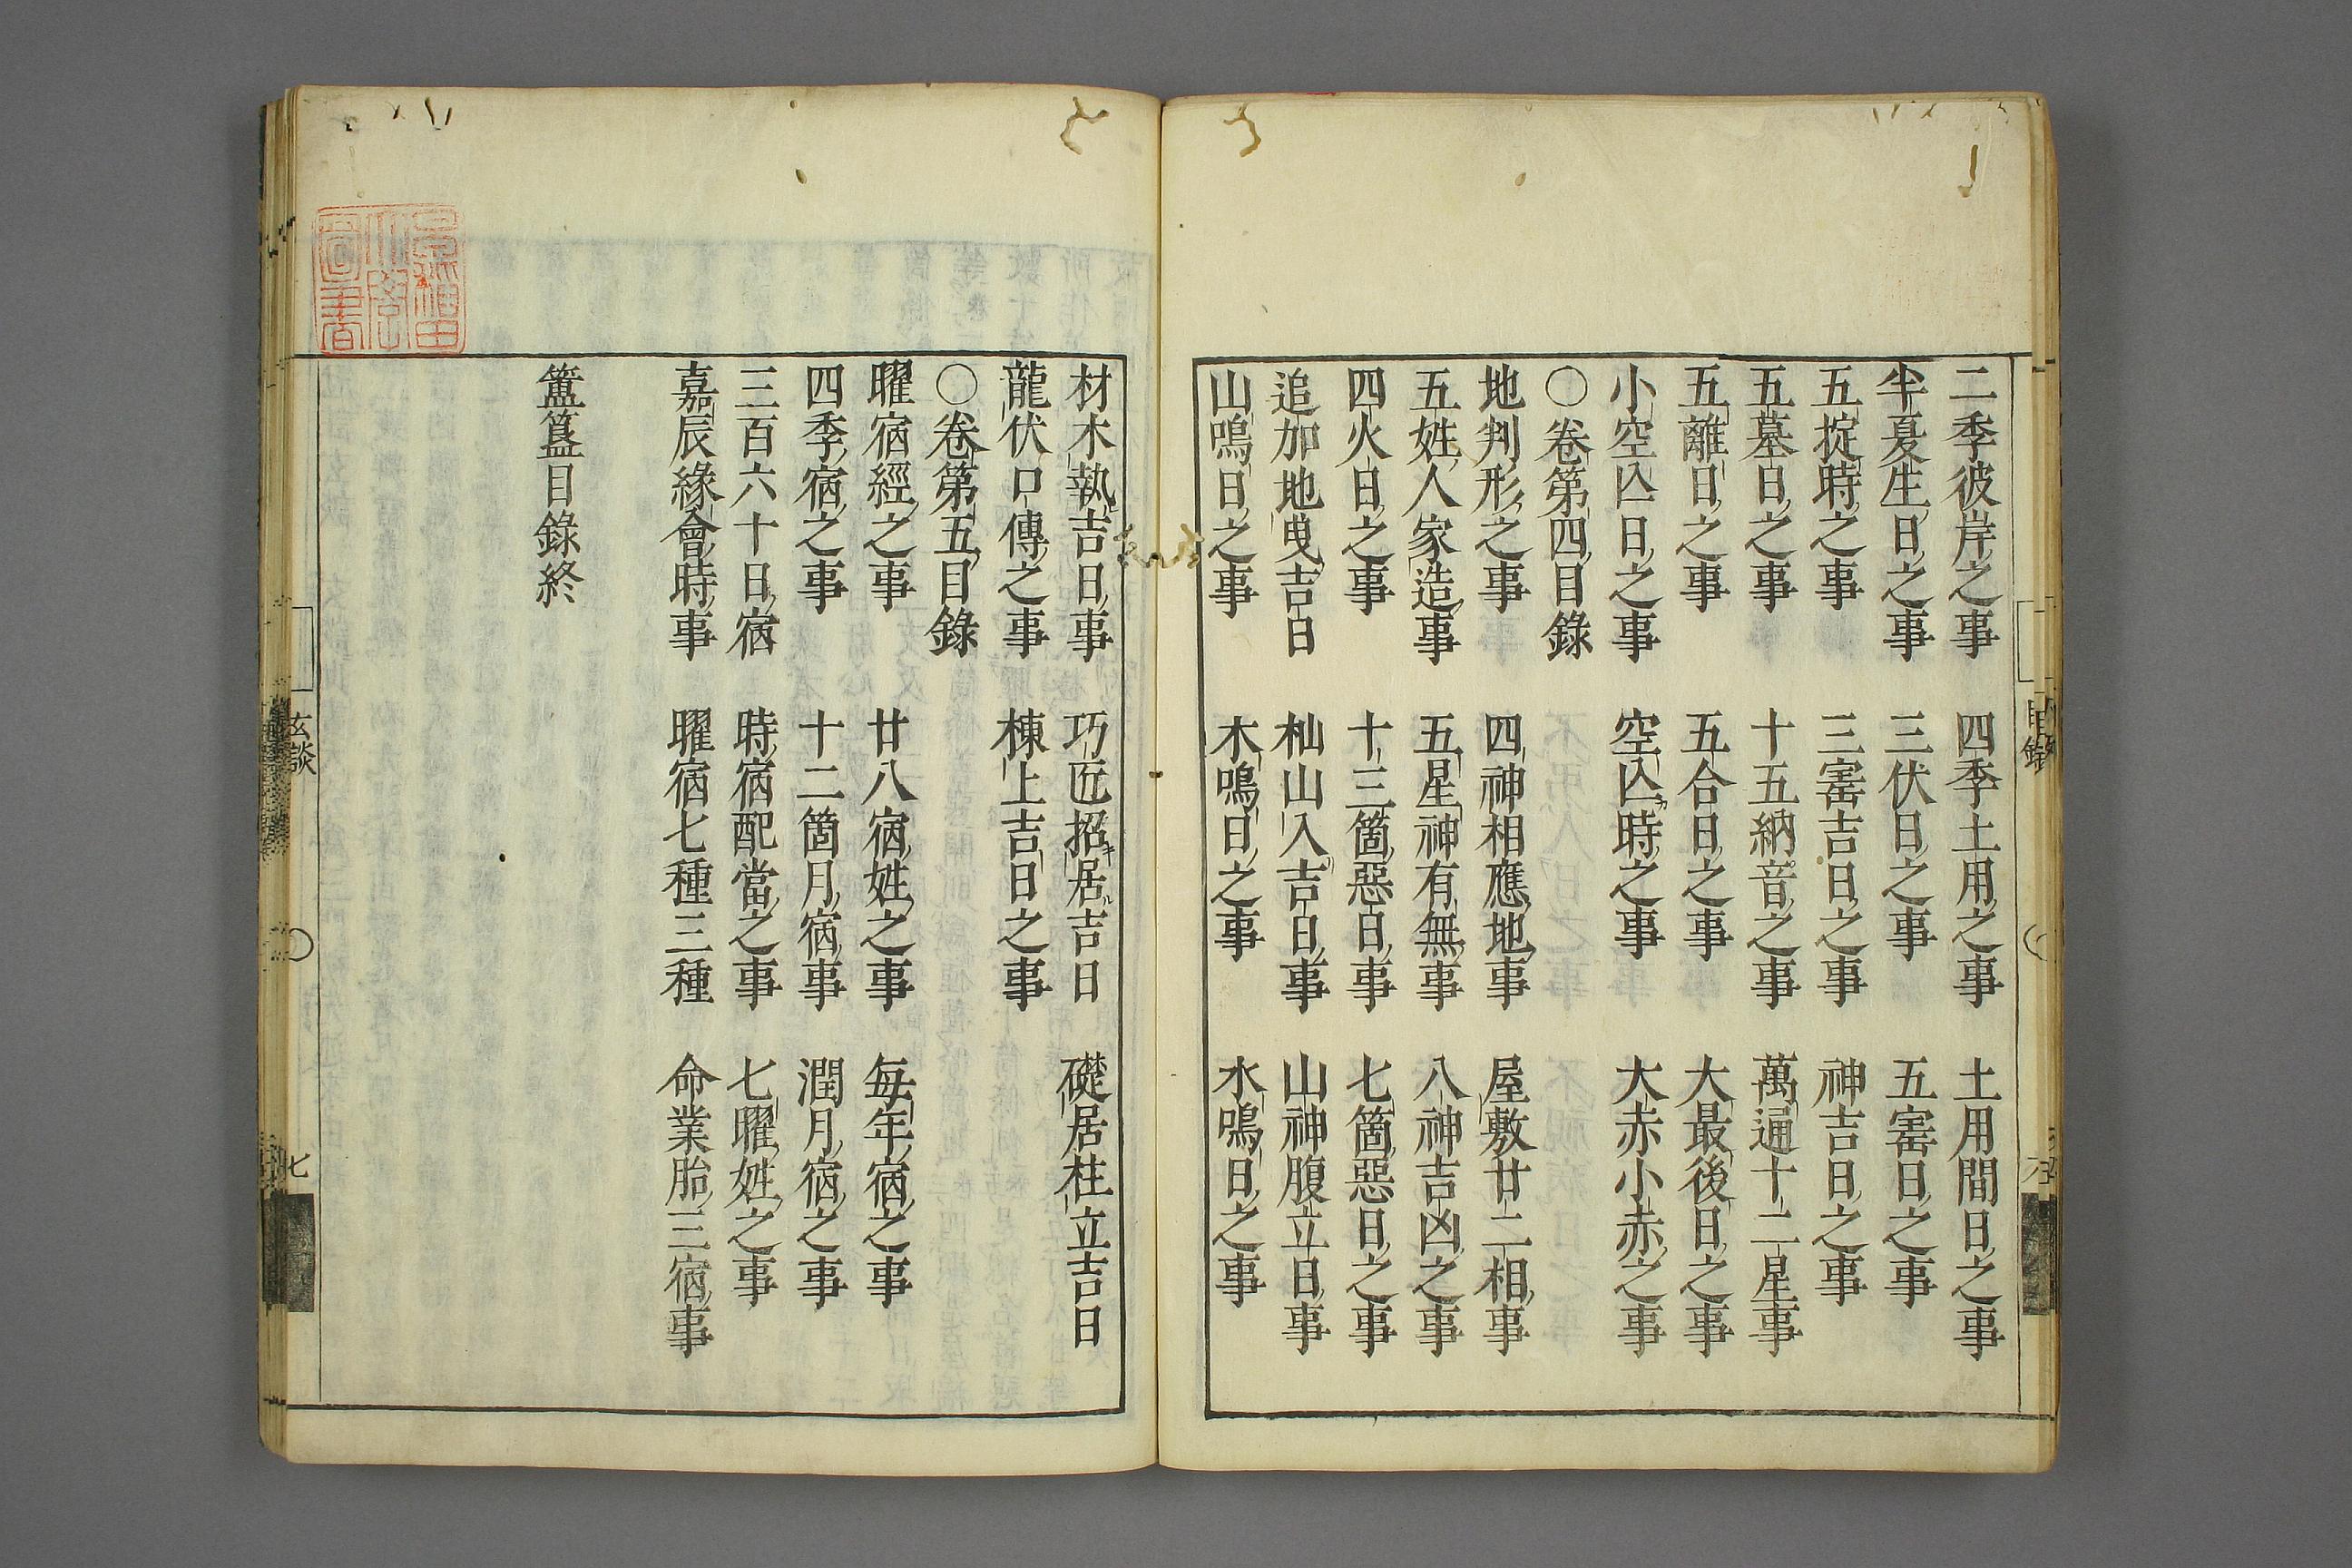 二季彼岸之事　四季土用之事　土用間日之事
半夏生日之事　三伏日之事　五窰日之事
五掟時之事　三窰吉日之事　神吉日之事
五墓日之事　十五納音之事　萬通十二星事
五離日之事　五合日之事　大最後日之事
小空亾日之事　空亾時之事　大赤小赤之事
〇卷第四目錄
地判形之事　四神相應地事　屋敷廿二相事
五姓人家造事　五星神有無事　八神吉凶之事
四火日之事　十三箇惡日事　七箇惡日之事
追加地曳吉日　杣山入吉日事　山神腹立日事
山鳴日之事　木鳴日之事　水鳴日之事
材木執吉日事　巧匠招キ居ル吉日　礎居柱立吉日
龍伏口傳之事　棟上吉日之事
〇卷第五目錄
曜宿經之事　廿八宿姓之事　每年宿之事
四季宿之事　十二箇月宿事　潤月宿之事
三百六十日宿　時宿配當之事　七曜姓之事
嘉辰緣會時事　曜宿七種三種　命業胎三宿事
簠簋目錄終
玄談　〇　七